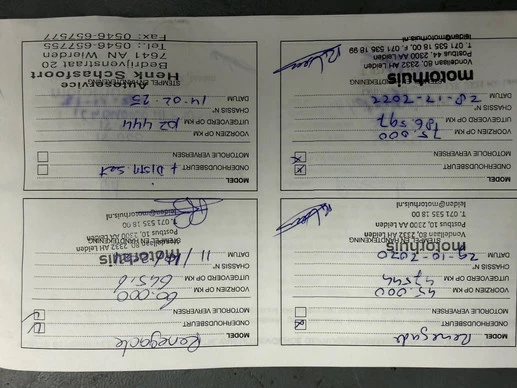 MODEL Renegade
ONDERHOUDSBEURT
MOTOROLIE VERVERSEN
VOORZIEN OP KM 45.000
UITGEVOERD OP KM 47544
CHASSIS N°
DATUM 29-10-2020
STEMPEL EN HANDTEKENING
motorhuis
Vondellaan 80, 2332 AH Leiden
Postbus 10, 2300 AA Leiden
T. 071 535 18 00
leiden@motorhuis.nl
MODEL Renegade
ONDERHOUDSBEURT
MOTOROLIE VERVERSEN
VOORZIEN OP KM 60.000
UITGEVOERD OP KM
CHASSIS N°
DATUM
STEMPEL EN HANDTEKENING
motorhuis
Vondellaan 80, 2332 AH Leiden
Postbus 10, 2300 AA Leiden
T. 071 535 18 00
leiden@motorhuis.nl
MODEL
ONDERHOUDSBEURT
MOTOROLIE VERVERSEN
VOORZIEN OP KM 75.000
UITGEVOERD OP KM
CHASSIS N°
DATUM 28-12-2022
STEMPEL EN HANDTEKENING
motorhuis
Vondellaan 80, 2332 AA Leiden
leiden@motorhuis.nl
MODEL
ONDERHOUDSBEURT + Distr. Set
MOTOROLIE VERVERSEN
VOORZIEN OP KM
UITGEVOERD OP KM
CHASSIS N°
DATUM 14-02-25
STEMPEL EN HANDTEKENING
Autoservice
Henk Schasfoort
Bedrijvenstraat 20
7641 AN Wierden
Tel.: 0546-657755
Fax: 0546-657577